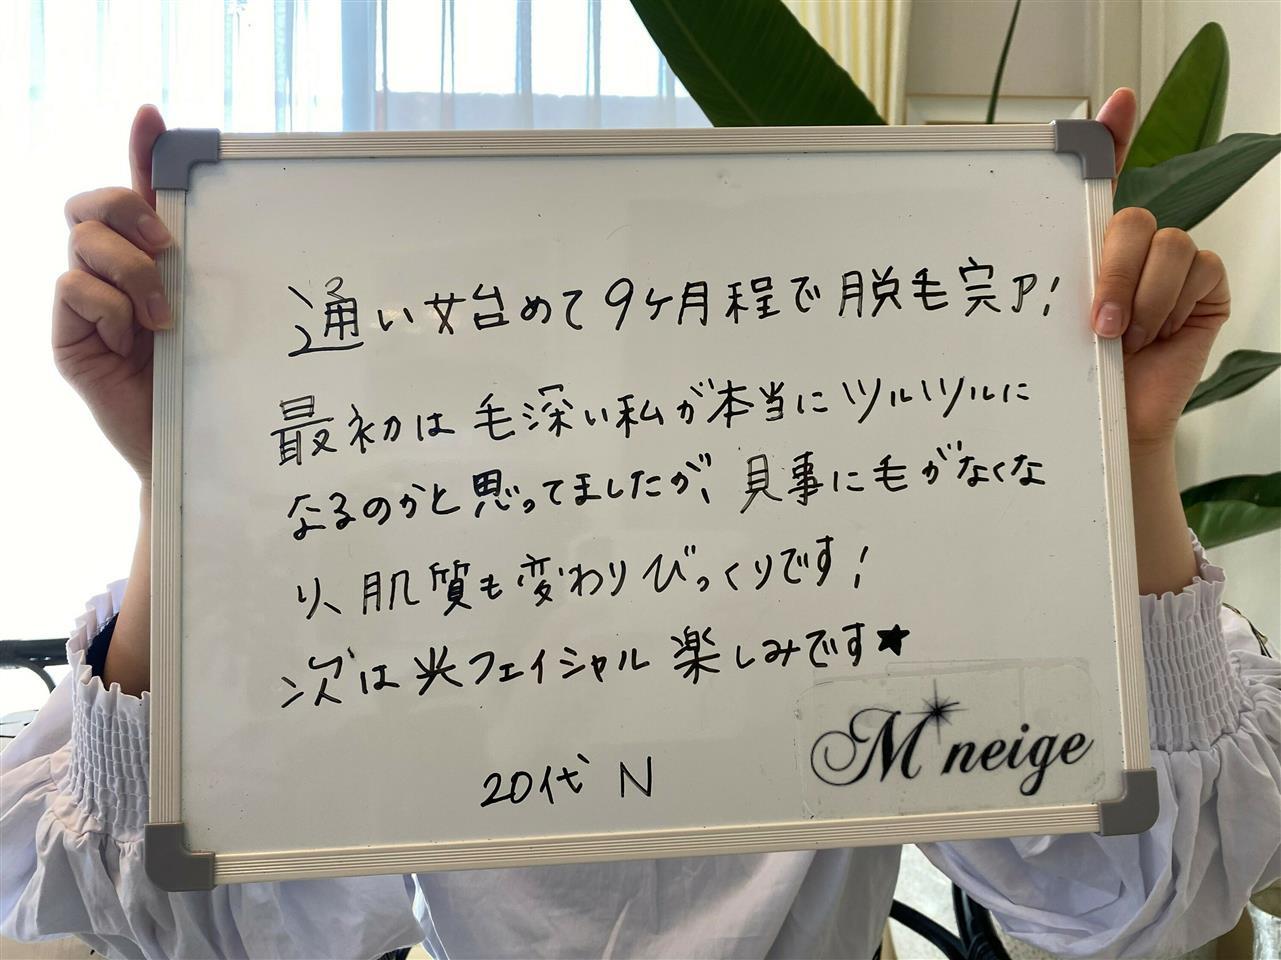 通い始めて9ヶ月程で脱毛完了!
最初は毛深い私が本当にツルツルに
なるのかと思ってましたが、見事に毛がなくな
り、肌質も変わりびっくりです!
次は光フェイシャル楽しみです★
20代 N
M'neige